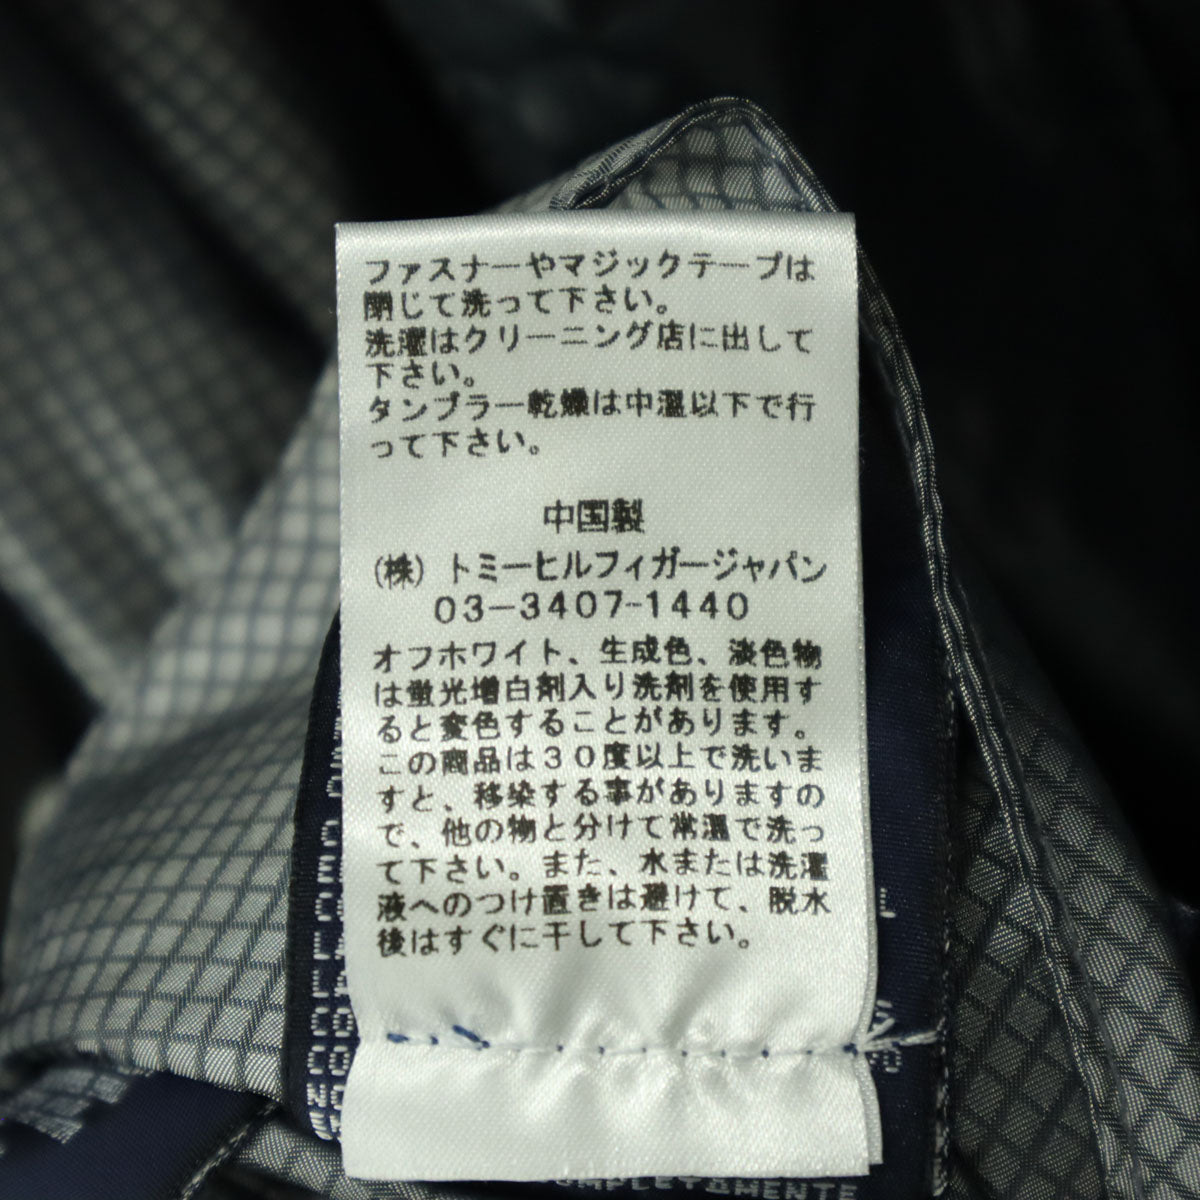 ファスナーやマジックテープは
閉じて洗って下さい。
洗濯はクリーニング店に出して
下さい。
タンブラー乾燥は中温以下で行
って下さい。
中国製
(株) トミーヒルフィガージャパン
03-3407-1440
オフホワイト、生成色、淡色物
は蛍光増白剤入り洗剤を使用す
ると変色することがあります。
この商品は30度以上で洗いま
すと、移染する事がありますの
で、他の物と分けて常温で洗っ
て下さい。また、水または洗濯
液へのつけ置きは避けて、脱水
後はすぐに干して下さい。